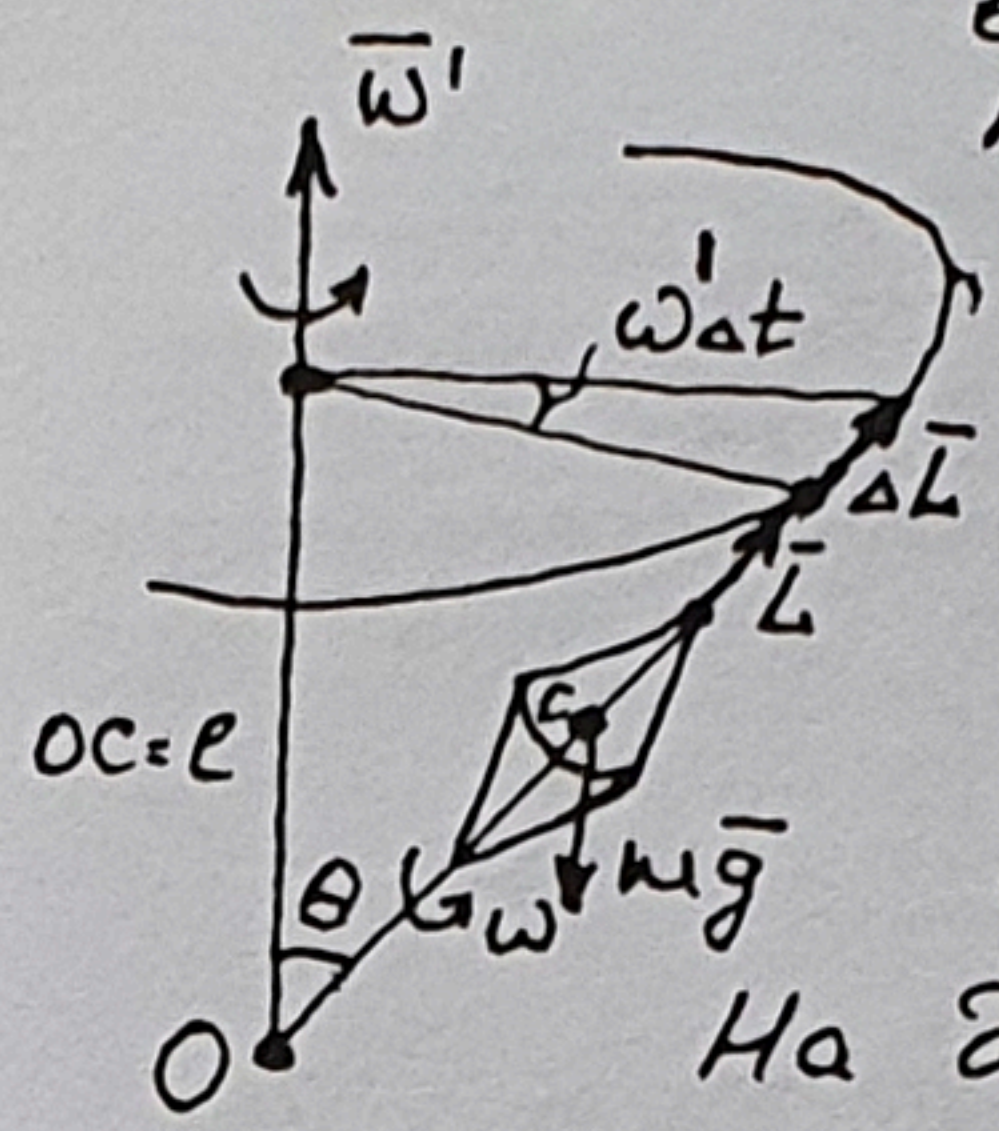 ω̅'
ω'Δt
ΔL̅
L̅
C
OC=ℓ
mg̅
θ
ω
O
На